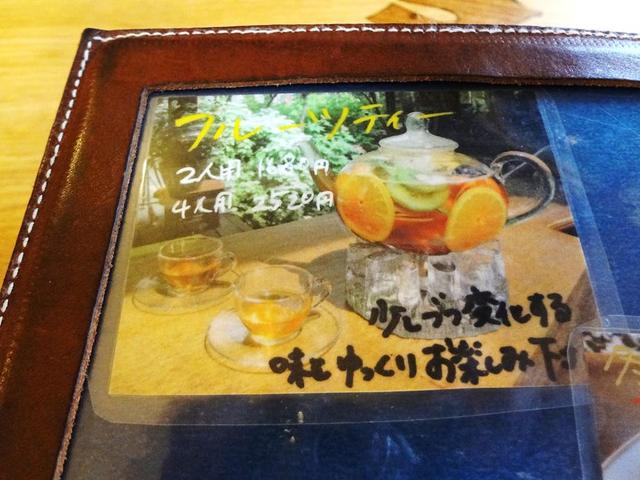 フルーツティー
2人用 1680円
4人用 2520円
少しづつ変化する
味をゆっくりお楽しみ下